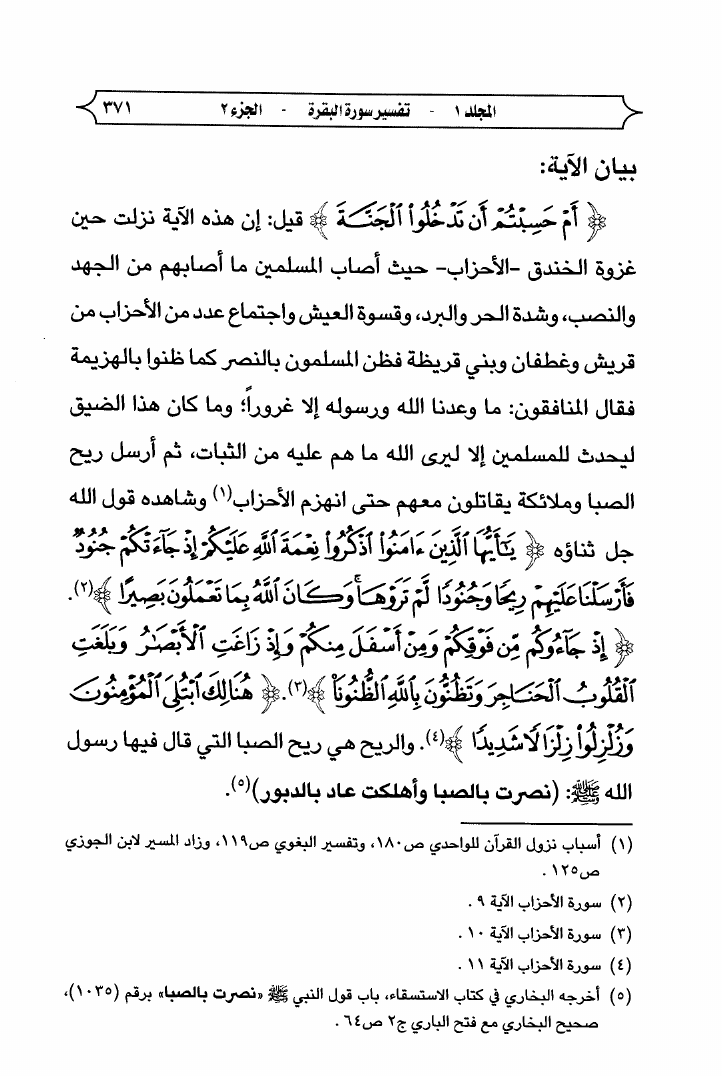 المجلد ١ - تفسير سورة البقرة - الجزء ٢ ٣٧١
بيان الآية:
﴿ أَمْ حَسِبْتُمْ أَن تَدْخُلُوا۟ ٱلْجَنَّةَ ﴾ قيل: إن هذه الآية نزلت حين
غزوة الخندق -الأحزاب- حيث أصاب المسلمين ما أصابهم من الجهد
والنصب، وشدة الحر والبرد، وقسوة العيش واجتماع عدد من الأحزاب من
قريش وغطفان وبني قريظة فظن المسلمون بالنصر كما ظنوا بالهزيمة
فقال المنافقون: ما وعدنا الله ورسوله إلا غروراً؛ وما كان هذا الضيق
ليحدث للمسلمين إلا ليرى الله ما هم عليه من الثبات، ثم أرسل ريح
الصبا وملائكة يقاتلون معهم حتى انهزم الأحزاب(١) وشاهده قول الله
جل ثناؤه ﴿ يَـٰٓأَيُّهَا ٱلَّذِينَ ءَامَنُوا۟ ٱذْكُرُوا۟ نِعْمَةَ ٱللَّهِ عَلَيْكُمْ إِذْ جَآءَتْكُمْ جُنُودٌ
فَأَرْسَلْنَا عَلَيْهِمْ رِيحًا وَجُنُودًا لَّمْ تَرَوْهَا ۚ وَكَانَ ٱللَّهُ بِمَا تَعْمَلُونَ بَصِيرًا ﴾(٢).
﴿ إِذْ جَآءُوكُم مِّن فَوْقِكُمْ وَمِنْ أَسْفَلَ مِنكُمْ وَإِذْ زَاغَتِ ٱلْأَبْصَـٰرُ وَبَلَغَتِ
ٱلْقُلُوبُ ٱلْحَنَاجِرَ وَتَظُنُّونَ بِٱللَّهِ ٱلظُّنُونَا۠ ﴾(٣). ﴿ هُنَالِكَ ٱبْتُلِىَ ٱلْمُؤْمِنُونَ
وَزُلْزِلُوا۟ زِلْزَالًا شَدِيدًا ﴾(٤). والريح هي ريح الصبا التي قال فيها رسول
الله ﷺ: (نصرت بالصبا وأهلكت عاد بالدبور)(٥).
(١) أسباب نزول القرآن للواحدي ص١٨٠، وتفسير البغوي ص١١٩، وزاد المسير لابن الجوزي
ص١٢٥ .
(٢) سورة الأحزاب الآية ٩ .
(٣) سورة الأحزاب الآية ١٠ .
(٤) سورة الأحزاب الآية ١١ .
(٥) أخرجه البخاري في كتاب الاستسقاء، باب قول النبي ﷺ «نصرت بالصبا» برقم (١٠٣٥)،
صحيح البخاري مع فتح الباري ج٢ ص٦٤ .